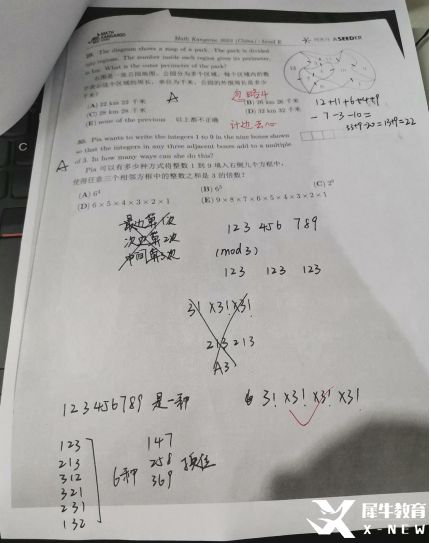 MATH
KANGAROO
Math Kangaroo 2023 (China) - Level E
SEEDER
29. The diagram shows a map of a park. The park is divided
into regions. The number inside each region gives its perimeter,
in km. What is the outer perimeter of the park?
右图是一张公园地图。公园分为多个区域。每个区域内的数
字表示这个区域的周长,单位为千米。公园的外围周长是多少
千米?
(A) 22 km 22 千米
(B) 26 km 26 千米
(C) 28 km 28 千米
(D) 32 km 32 千米
(E) none of the previous 以上都不正确
A
忽略4
计边去心
12+11+6+4+9
-7-3-10=
30. Pia wants to write the integers 1 to 9 in the nine boxes shown
so that the integers in any three adjacent boxes add to a multiple
of 3. In how many ways can she do this?
A
Pia 可以有多少种方式将整数 1 到 9 填入右侧九个方框中,
使得任意三个相邻方框中的整数之和是 3 的倍数?
(A) 6⁴
(B) 6⁵
(C) 2⁹
(D) 6 × 5 × 4 × 3 × 2 × 1
(E) 9 × 8 × 7 × 6 × 5 × 4 × 3 × 2 × 1
123 456 789
(mod 3)
123 123 123
3! X3! X3!
213 213
A3
123456789 是一种
3! X3! X3! X3!
123
213
312
321
231
132
6种
147
258
369
换位
犀牛教育
X-NEW